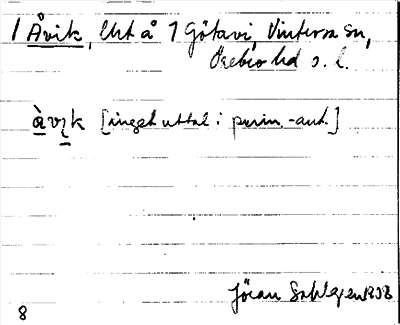 1 Åvik, lht å 1 Götavi, Vintersa sn,
Örebro hd o. l.
àvịk [inget uttal i prim.-aut.]
Jöran Sahlgren 1938
8